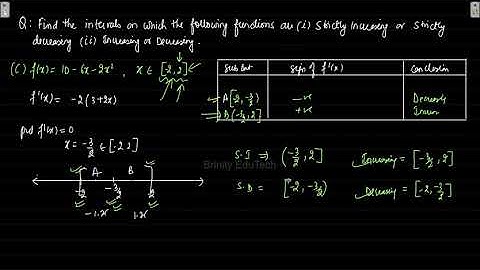 Q: Find the intervals on which the following functions are (i) Strictly Increasing or Strictly
decreasing (ii) Increasing or Decreasing.
(c) f(x) = 10 - 6x - 2x², x ∈ [-2, 2]
f'(x) = -2(3+2x)
put f'(x) = 0
x = -3/2 ∈ [-2 2]
A B
-2 -3/2 2
-1.75 1.75
Sub Int Sign of f'(x) Conclusion
A[-2, -3/2) -ve Decreas
B(-3/2, 2] +ve Increas
S.I ⇒ (-3/2, 2] Increasing = [-3/2, 2]
S.D = [-2, -3/2) Decreasing = [-2, -3/2]
Brinity EduTech